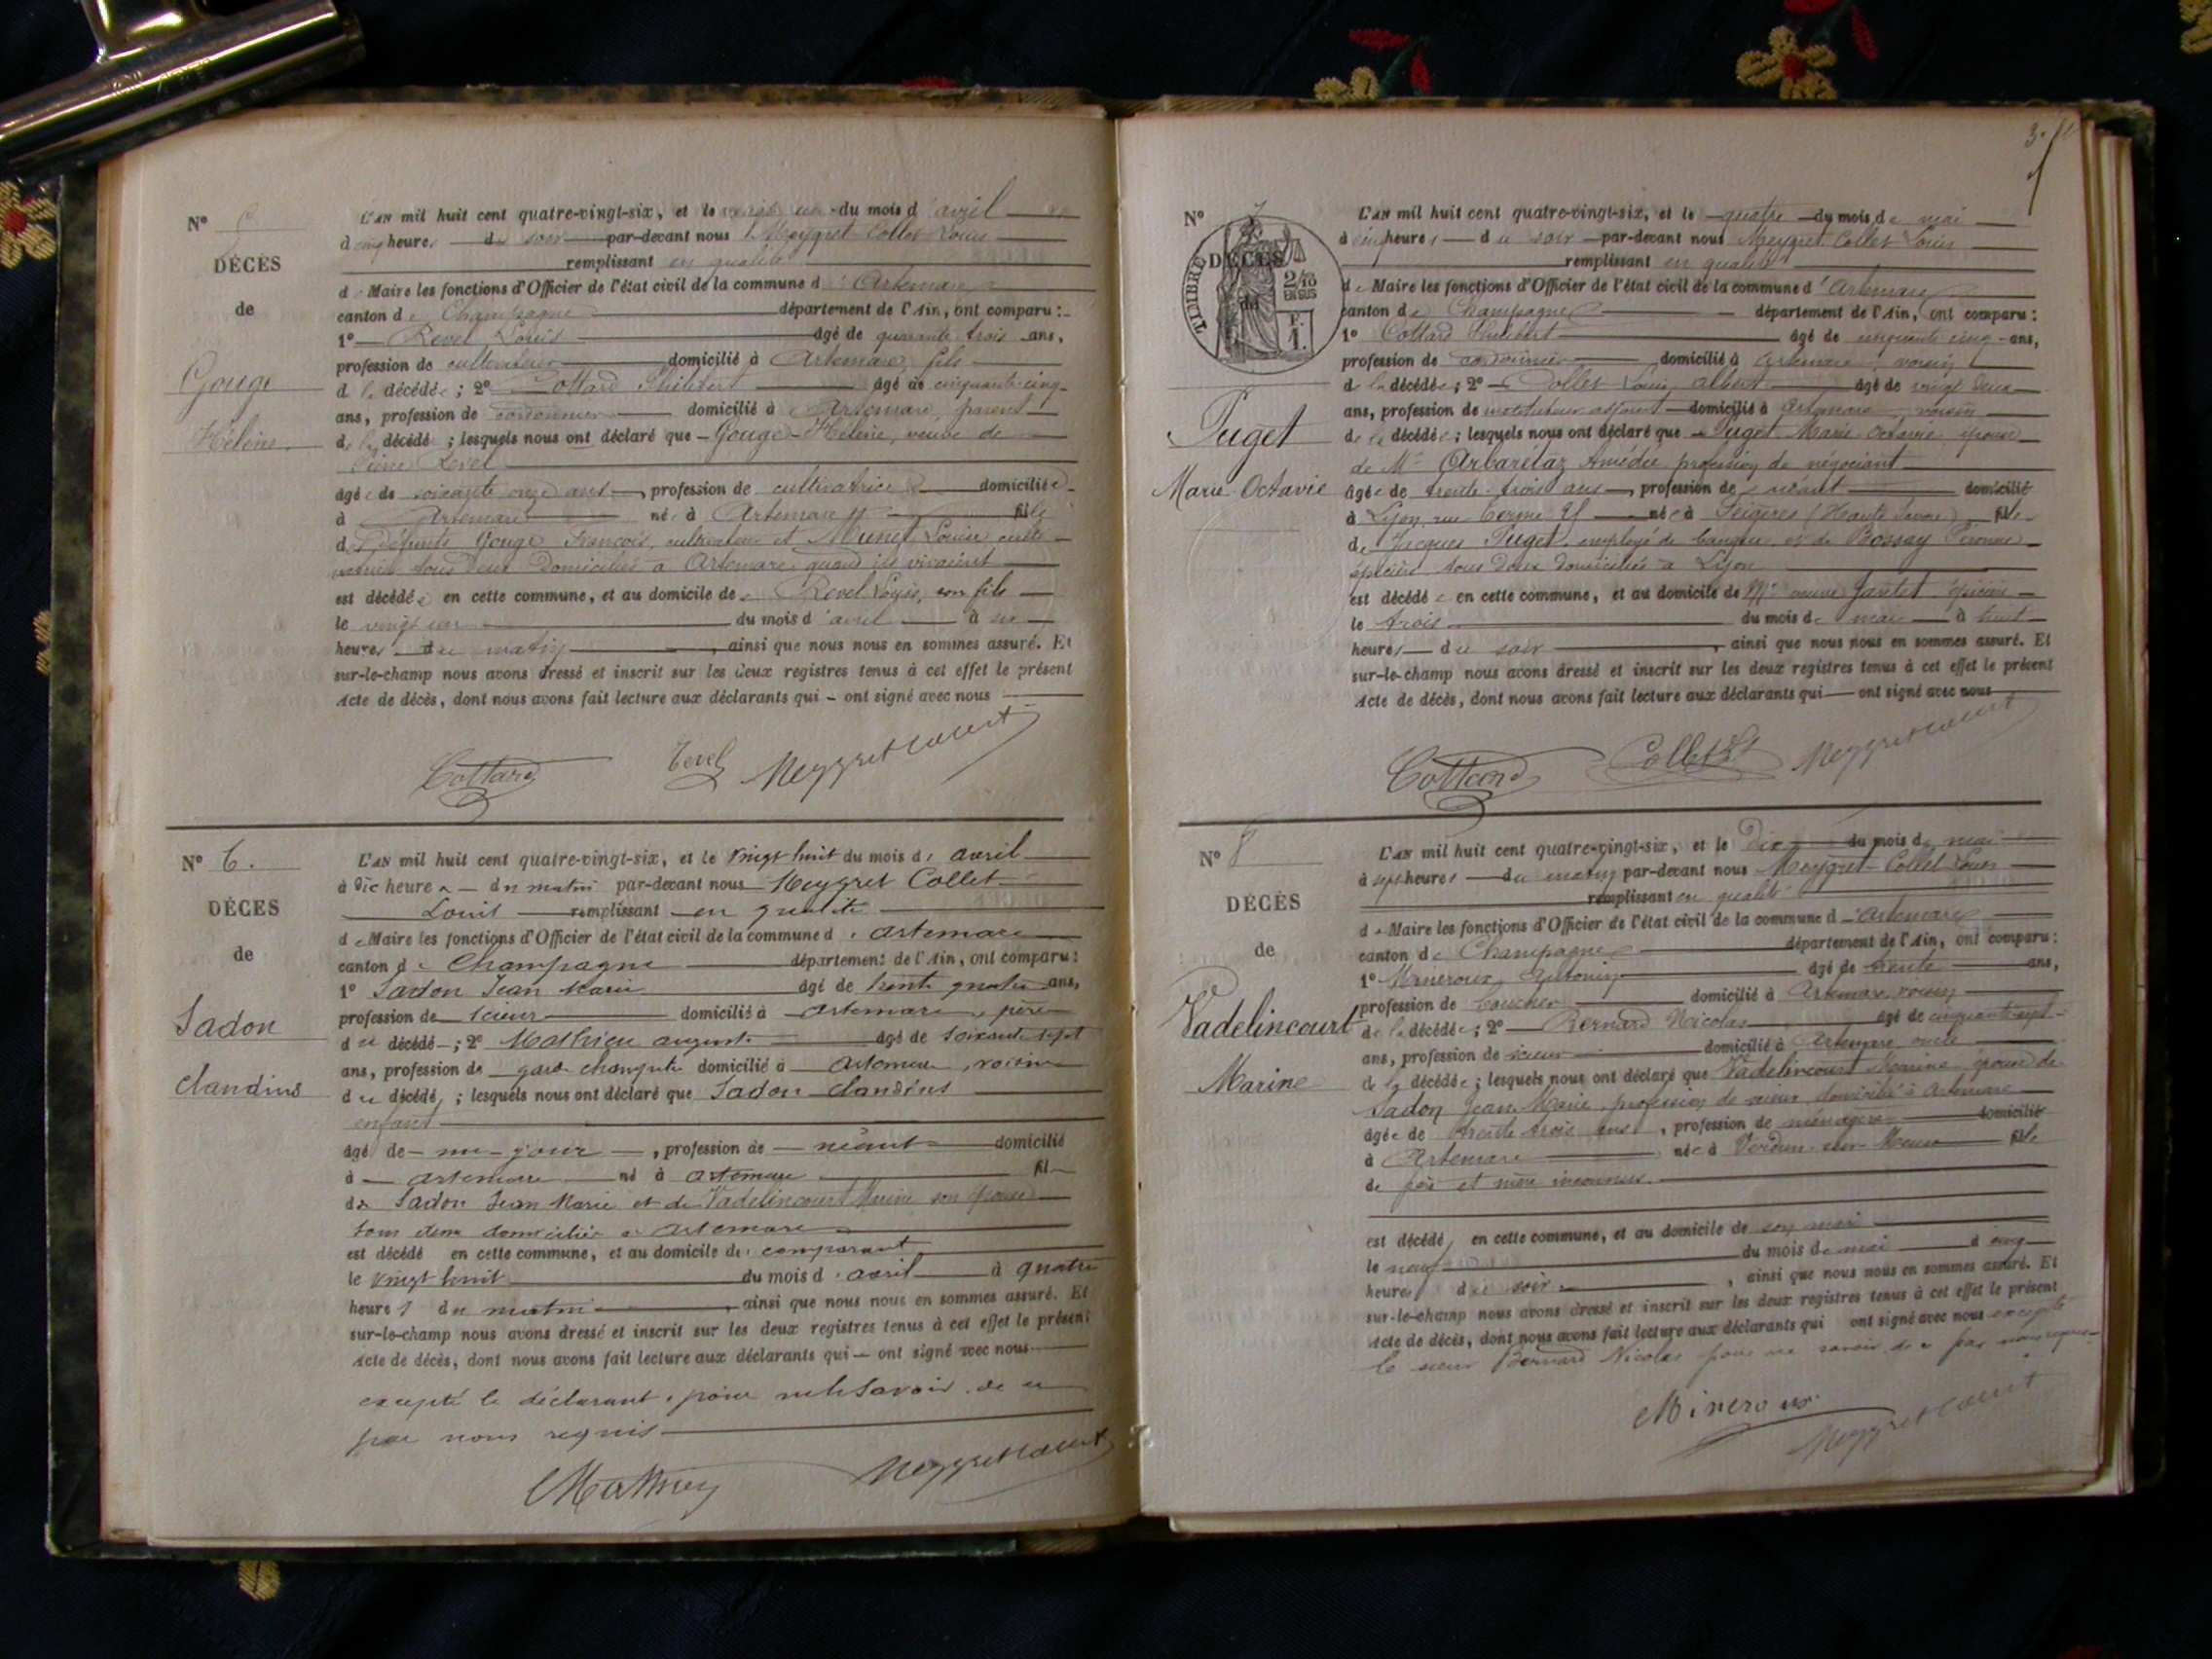 N° 5
DÉCÈS
de
Gouge
Hélène
L'AN mil huit cent quatre-vingt-six, et le vingt un du mois d'avril
à cinq heures du soir par-devant nous Meygret Collet Louis
remplissant en qualité
de Maire les fonctions d'Officier de l'état civil de la commune d'Artemare
canton de Champagne département de l'Ain, ont comparu :
1° Revel Louis âgé de quarante trois ans,
profession de cultivateur domicilié à Artemare, fils
de la décédée ; 2° Cottard Philibert âgé de cinquante-cinq
ans, profession de cordonnier domicilié à Artemare, parent
de la décédé ; lesquels nous ont déclaré que Gouge Hélène, veuve de
Revel
âgée de soixante onze ans, profession de cultivatrice domiciliée
à Artemare née à Artemare fille
de défunts Gouge François, cultivateur et Munet Louise culti-
vatrice tous deux domiciliés à Artemare quand ils vivaient
est décédée en cette commune, et au domicile de Revel Louis, son fils
le vingt un du mois d'avril à
heures du matin, ainsi que nous nous en sommes assuré. Et
sur-le-champ nous avons dressé et inscrit sur les deux registres tenus à cet effet le présent
Acte de décès, dont nous avons fait lecture aux déclarants qui - ont signé avec nous
Cottard Revel Meygret Collet
N° 6.
DÉCES
de
Sadon
Claudius
L'AN mil huit cent quatre-vingt-six, et le vingt huit du mois d'avril
à dix heures du matin par-devant nous Meygret Collet
Louis remplissant en qualité
de Maire les fonctions d'Officier de l'état civil de la commune d'artemare
canton de Champagne département de l'Ain, ont comparu :
1° Sadon Jean Marie âgé de trente quatre ans,
profession de scieur domicilié à artemare, père
du décédé ; 2° Mathieu auguste âgé de soixante sept
ans, profession de garde champêtre domicilié à artemare, voisin
du décédé ; lesquels nous ont déclaré que Sadon Claudius
enfant
âgé de un jour, profession de néant domicilié
à artemare né à artemare fil
de Sadon Jean Marie et de Vadelincourt Marine son épouse
tous deux domiciliés à artemare
est décédé en cette commune, et au domicile du comparant
le vingt huit du mois d'avril à quatre
heures du matin, ainsi que nous nous en sommes assuré. Et
sur-le-champ nous avons dressé et inscrit sur les deux registres tenus à cet effet le présent
Acte de décès, dont nous avons fait lecture aux déclarants qui - ont signé avec nous
excepté le déclarant, pour ne le savoir de ce
par nous requis
Mathieu Meygret Collet
3.
N° 7
DÉCÈS
de
TIMBRE
2/10
EN SUS
F.
1.
Puget
Marie Octavie
L'AN mil huit cent quatre-vingt-six, et le quatre du mois de mai
à cinq heures du soir par-devant nous Meygret Collet Louis
remplissant en qualité
de Maire les fonctions d'Officier de l'état civil de la commune d'Artemare
canton de Champagne département de l'Ain, ont comparu :
1° Cottard Philibert âgé de cinquante cinq ans,
profession de cordonnier domicilié à Artemare, voisin
de la décédée ; 2° Collet Louis albert âgé de vingt deux
ans, profession de instituteur adjoint domicilié à Artemare, voisin
de la décédée ; lesquels nous ont déclaré que Puget Marie Octavie épouse
de Mr Arbaretaz Amédée profession de négociant
âgée de trente-trois ans, profession de néant domicilié
à Lyon, rue née à (Haute Savoie) fille
de Jacques Puget, employé de banque, et de Bossay
épicière tous deux domiciliés à Lyon
est décédée en cette commune, et au domicile de Mme veuve Jantet
le trois du mois de mai à huit
heures du soir, ainsi que nous nous en sommes assuré. Et
sur-le-champ nous avons dressé et inscrit sur les deux registres tenus à cet effet le présent
Acte de décès, dont nous avons fait lecture aux déclarants qui - ont signé avec nous
Cottard Collet Meygret Collet
N° 8
DÉCÈS
de
Vadelincourt
Marine
L'AN mil huit cent quatre-vingt-six, et le Dix du mois de mai
à sept heures du matin par-devant nous Meygret Collet Louis
remplissant en qualité
de Maire les fonctions d'Officier de l'état civil de la commune d'artemare
canton de Champagne département de l'Ain, ont comparu :
1° Mineroux Antonin âgé de trente ans,
profession de boucher domicilié à Artemare, voisin
de la décédée ; 2° Bernard Nicolas âgé de cinquante sept
ans, profession de scieur domicilié à Artemare, oncle
de la décédée ; lesquels nous ont déclaré que Vadelincourt Marine épouse de
Sadon Jean Marie, profession de scieur domicilié à Artemare
âgée de trente trois ans, profession de ménagère domicilié
à Artemare née à Verdun sur Meuse fille
de père et mère inconnus
est décédé en cette commune, et au domicile de son mari
le neuf du mois de mai à cinq
heures du soir, ainsi que nous nous en sommes assuré. Et
sur-le-champ nous avons dressé et inscrit sur les deux registres tenus à cet effet le présent
Acte de décès, dont nous avons fait lecture aux déclarants qui ont signé avec nous excepté
le sieur Bernard Nicolas pour ne savoir de ce par nous requis
Mineroux
Meygret Collet